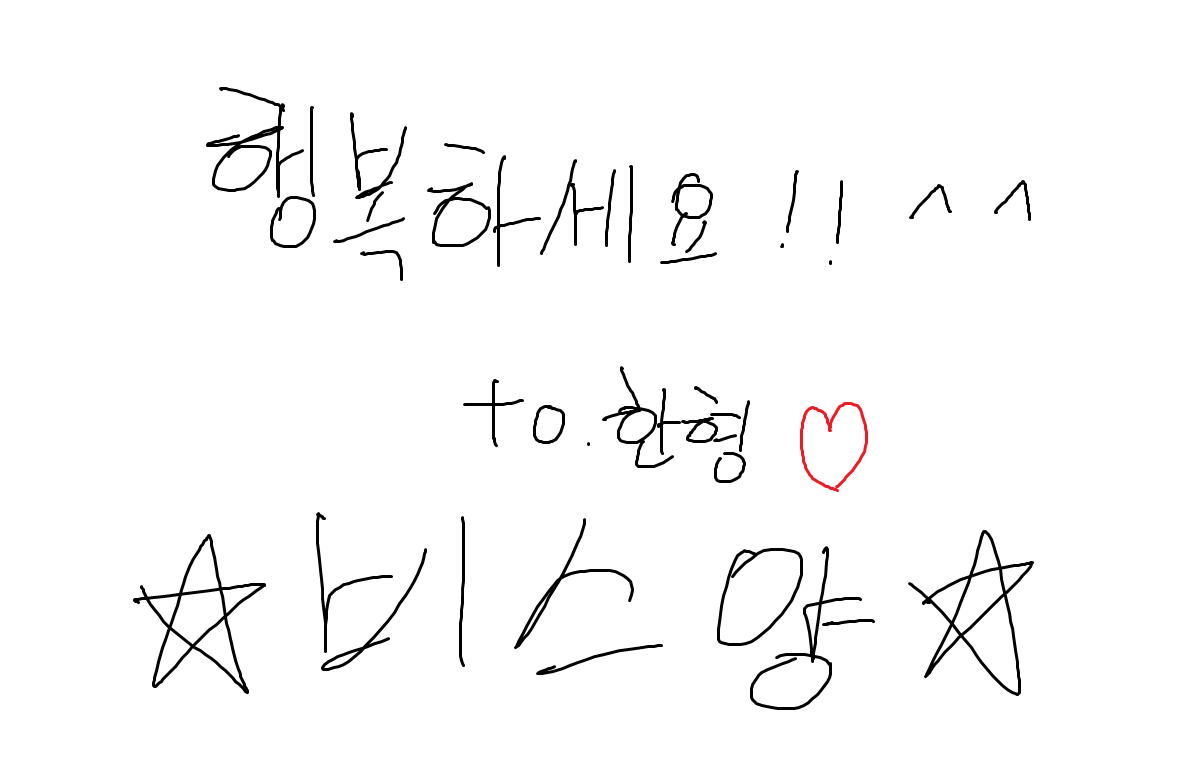 행복하세요!! ^^
to. 한형 ♡
☆비스양☆